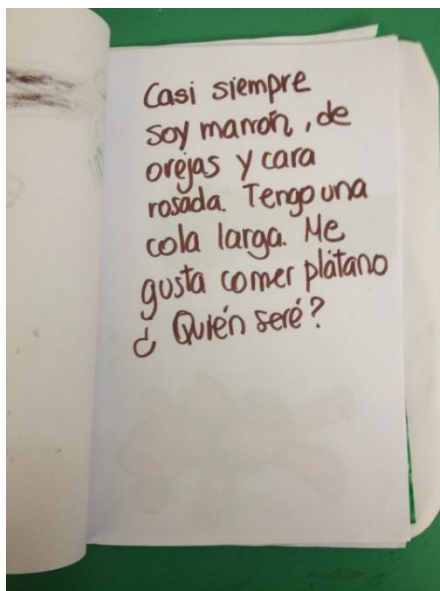 Casi siempre
soy marrón, de
orejas y cara
rosada. Tengo una
cola larga. Me
gusta comer plátano
¿Quién seré?